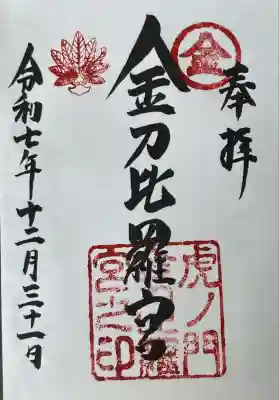 奉拝
金刀比羅宮
令和七年十二月三十一日
金
虎ノ門
金刀比羅
宮之印